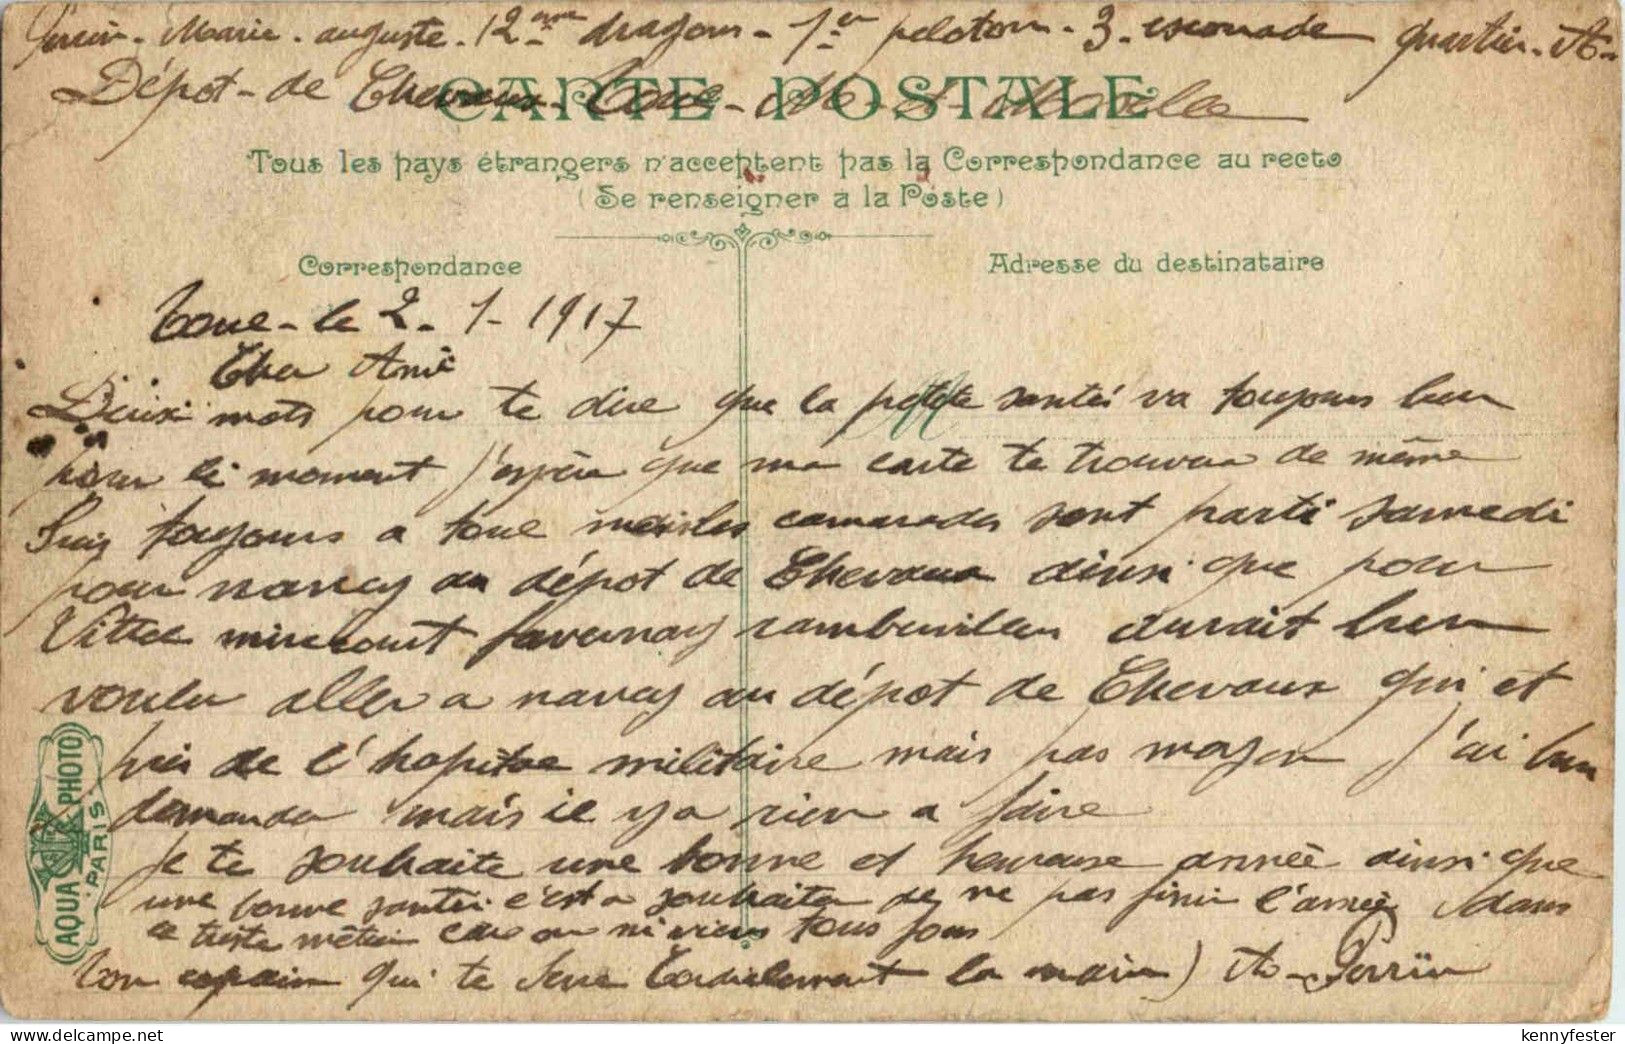 Perrin - Marie - auguste - 12ème dragons - 1er peloton - 3 - escouade quartier - A -
Dépot - de Chevaux - Toul - Mthe et Moselle
CARTE POSTALE
Tous les pays étrangers n'acceptent pas la Correspondance au recto
(Se renseigner à la Poste)
Correspondance
Adresse du destinataire
Toul - le 2 - 1 - 1917
Cher Ami
Deux mots pour te dire que la petite santé va toujours bien
pour le moment j'espère que ma carte te trouvera de même
Suis toujours a toul mais les camarades sont parti samedi
pour nancy au dépot de Chevaux ainsi que pour
Vittel mirecourt favernay rambervillers aurait bien
voulu aller a nancy au dépot de Chevaux qui et
près de l'hopital militaire mais pas moyen j'ai bien
demander mais il y a rien a faire
je te souhaite une bonne et heureuse année ainsi que
une bonne santé c'est a souhaiter de ne pas finir l'année dans
ce triste métier car on ni viens tous fous
Ton copain qui te serre Cordialement la main) A - Perrin
AQUA PHOTO
PARIS
kennyfester